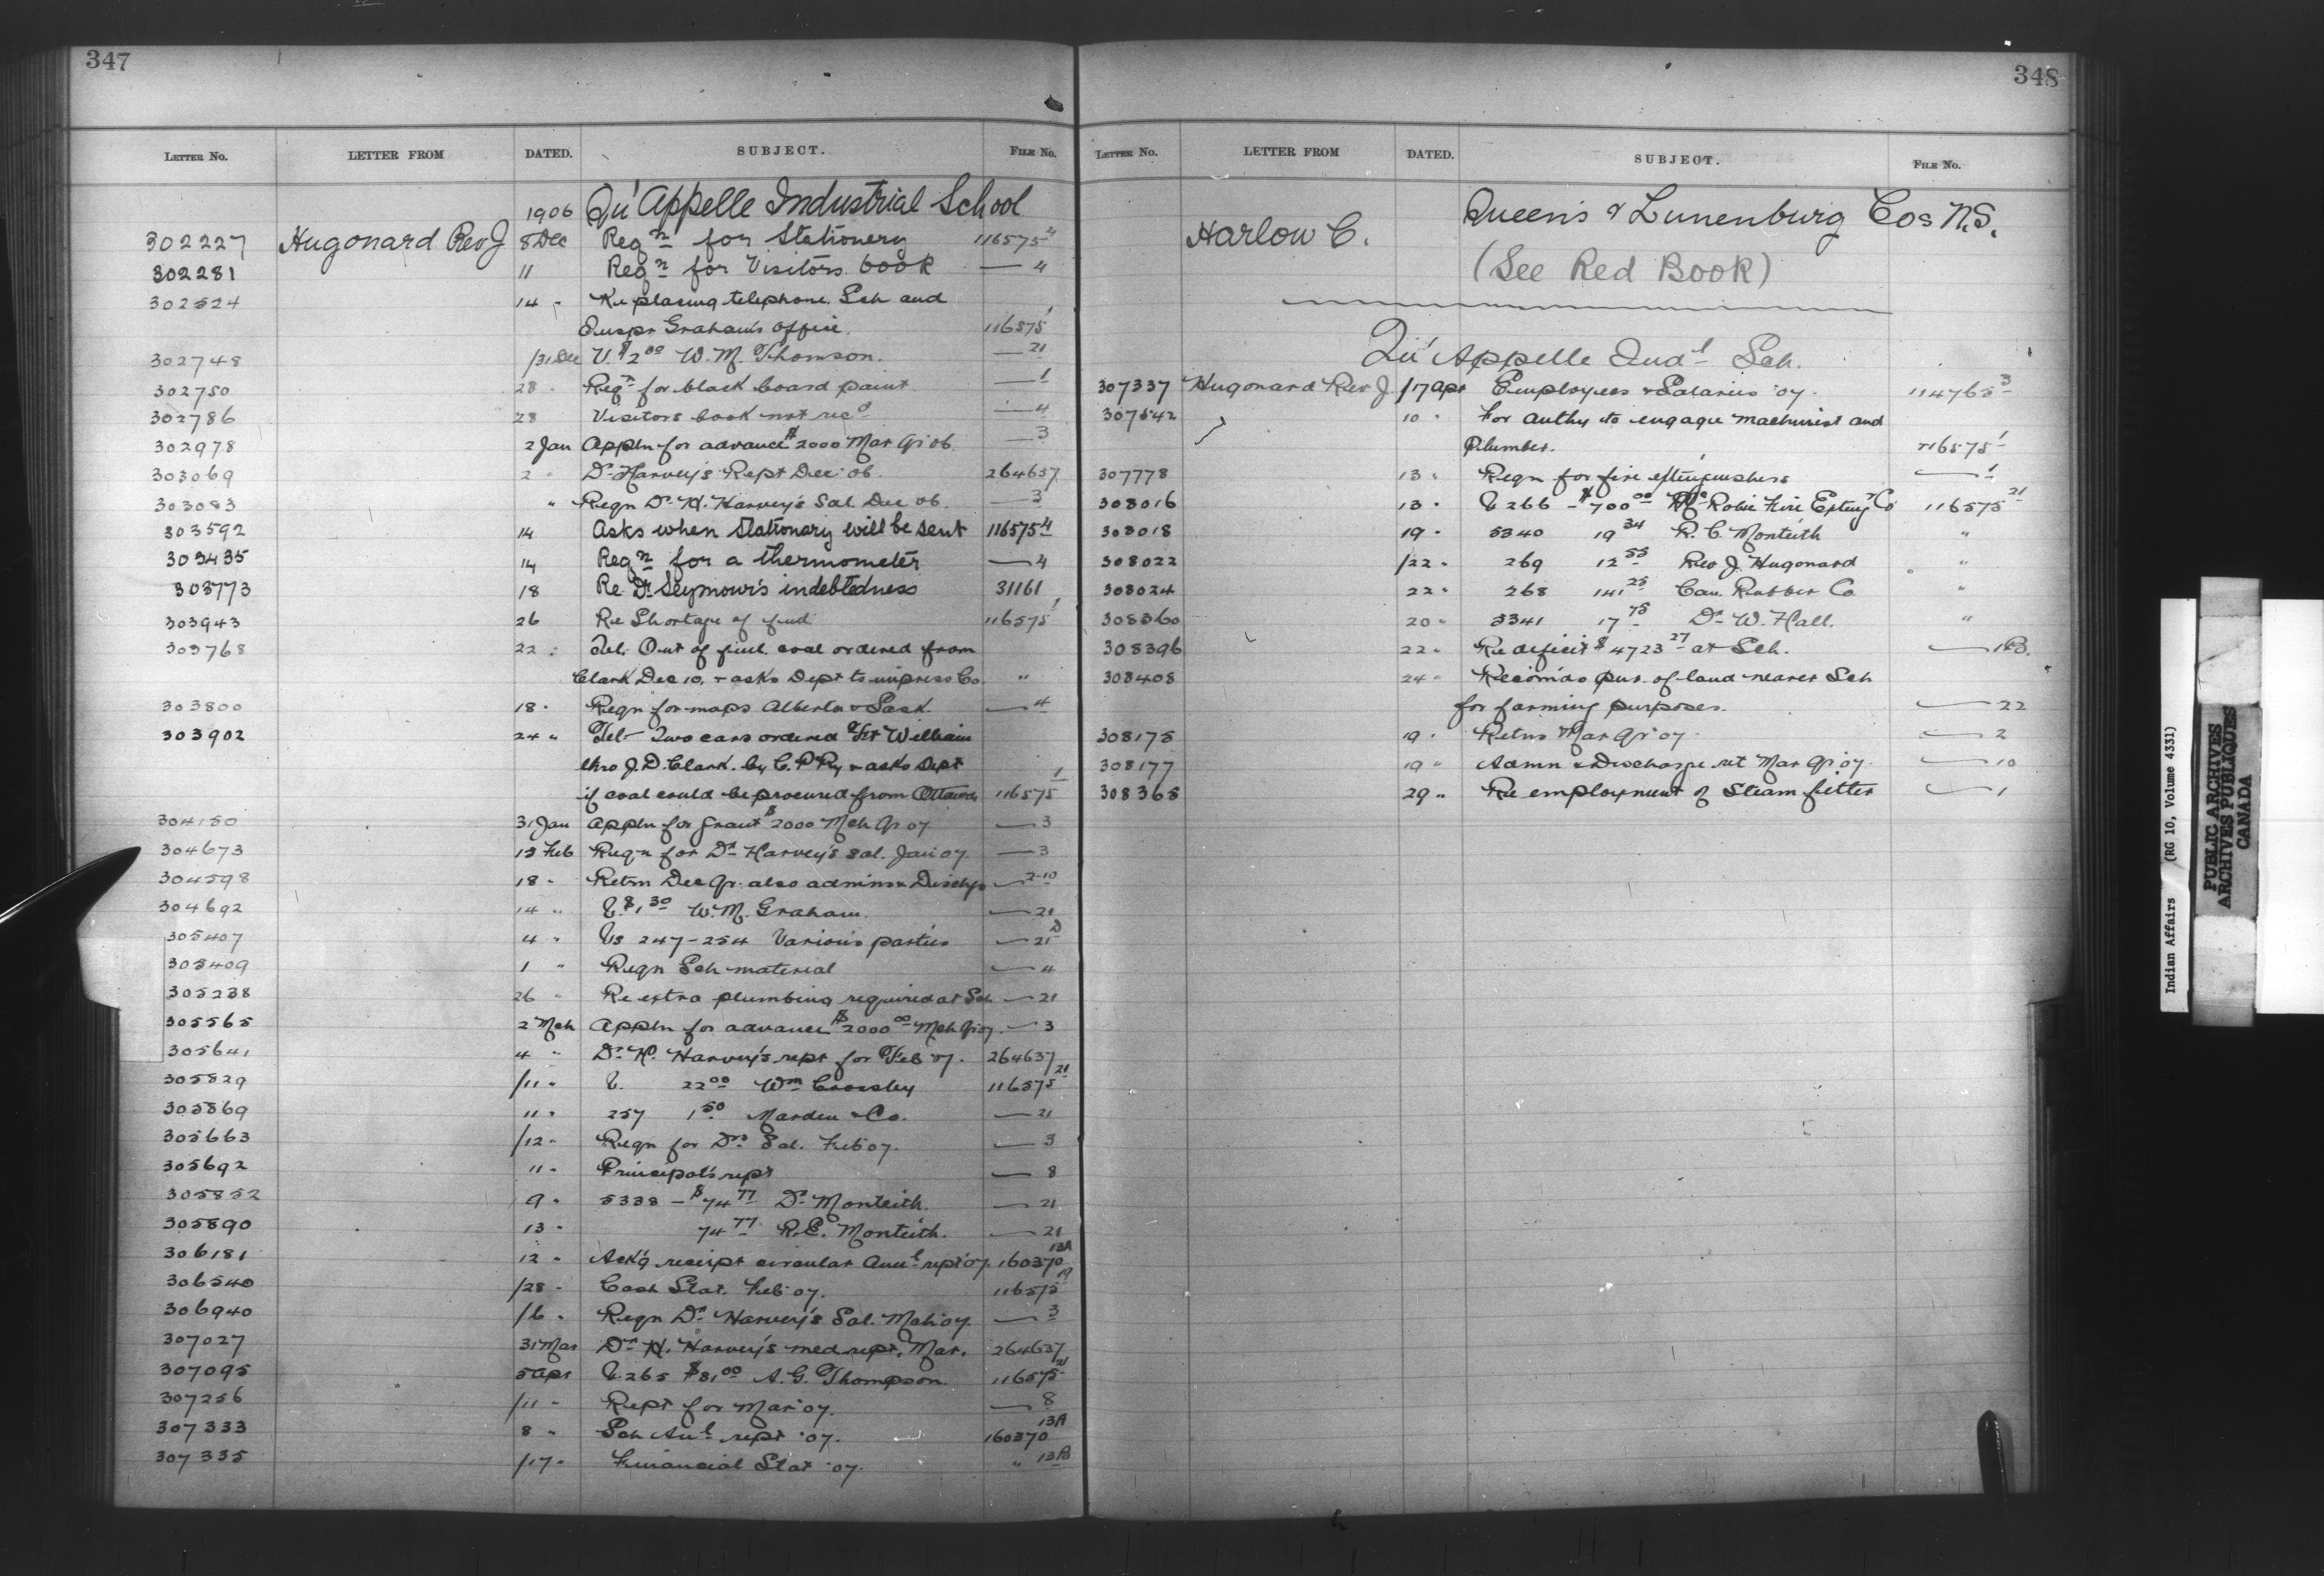 347
LETTER No. LETTER FROM DATED. SUBJECT. FILE No.
1906 Qu'Appelle Industrial School
302227 Hugonard Rev J 8 Dec Reqn for Stationery 116575 4
302281 11 Reqn for Visitors book — 4
302524 14 " Re placing telephone Sch and
Inspr Graham's office. 116575 1
302748 /31 Dec V. $2 00 W. M. Thomson. — 21
302750 28 " Reqn for black board paint — 1
302786 28 Visitors book not recd — 4
302978 2 Jan Appln for advance $2000 Mar Qr 06. — 3
303069 2 " Dr Harvey's Rept Dec '06. 264637
303083 " Reqn Dr H. Harvey's Sal. Dec 06. — 3
303592 14 Asks when Stationary will be sent 116575 4
303435 14 Reqn for a thermometer — 4
303773 18 Re Dr Seymour's indebtedness 31161
303943 26 Re Shortage of fuel 116575 1
303768 22 : Tel: Out of fuel, coal ordered from
Clark Dec 10, & asks Dept to impress Co. "
303800 18 " Reqn for maps Alberta & Sask. — 4
303902 24 " Tel- Two cars ordered Ft William
thro J. D. Clark. by C. P Ry & asks Dept
if coal could be procured from Ottawa 116575 1
304150 31 Jan Appln for grant $2000 Mch Qr 07 — 3
304673 13 Feb Reqn for Dr Harvey's Sal. Jan '07 — 3
304598 18 " Retrn Dec Qr. also admins & Dischgs — 2-10
304692 14 " V. $1 30 W. M. Graham. — 21
305407 4 " Vs 247-254 Various parties — 21 D
305409 1 " Reqn Sch material — 4
305238 26 " Re extra plumbing required at Sch — 21
305565 2 Mch Appln for advance $2000 00 Mch Qr 07. — 3
305641 4 " Dr H. Harvey's rept for Feb '07. 264637
305829 /11 " V. 22 00 Wm Crossley 116575 21
305869 11 " 257 1 50 Marden & Co. — 21
305663 /12 " Reqn for Drs Sal. Feb '07. — 3
305692 11 " Principal's rept — 8
305852 9 " 5338 - $74 77 Dr Monteith. — 21
305890 13 " 74 77 R. C. Monteith. — 21
306181 12 " Ack'g receipt circular Annl rept '07. 160370 13A
306540 /28 " Cash Stat. Feb '07. 116575 19
306940 /6 " Reqn Dr Harvey's Sal. Mch '07. — 3
307027 31 Mar Dr H. Harvey's med rept, Mar. 264637
307095 5 Apr V. 265 $81 00 A. G. Thompson 116575 21
307256 /11 " Rept for Mar '07. — 8
307333 8 " Sch Anl rept '07. 160370 13A
307335 /17 " Financial Stat '07. " 13B
348
LETTER No. LETTER FROM DATED. SUBJECT. FILE No.
Harlow C. Queen's & Lunenburg Cos N.S.
(See Red Book)
Qu'Appelle Indl Sch.
307337 Hugonard Rev J. /17 Apr Employees & Salaries '07. 114765 3
307542 10 " For authy to engage machinist and
Plumber. 116575 1
307778 13 " Reqn for fire extinguishers — 1
308016 13 " V 266 - $700 00 McRobie Fire Exting Co 116575 21
308018 19 " 5340 19 34 R. C. Monteith "
308022 /22 " 269 12 55 Rev J. Hugonard "
308024 22 " 268 141 25 Can. Rubber Co "
308360 20 " 5341 17 75 Dr W. Hall. "
308396 22 " Re deficit $4723 27 at Sch. — 1B.
308408 24 " Recom'ds pur. of land nearer Sch
for farming purposes. — 22
308175 19 " Retns Mar Qr '07. — 2
308177 19 " Admn & Discharge ret Mar Qr 07. — 10
308365 29 " Re employment of Steam fitter — 1
Indian Affairs (RG 10, Volume 4331)
PUBLIC ARCHIVES
ARCHIVES PUBLIQUES
CANADA